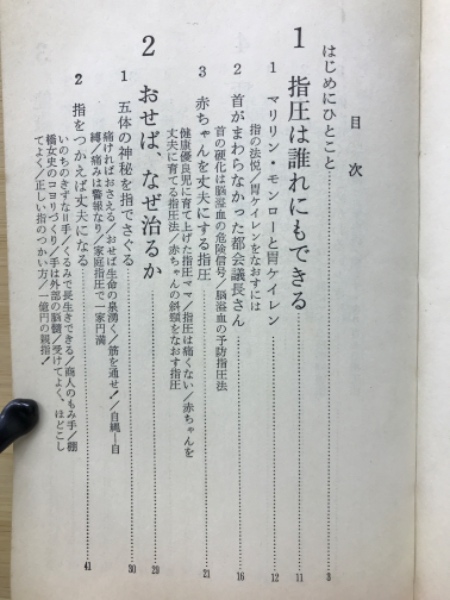 目次
はじめにひとこと……3
1 指圧は誰れにもできる……11
1 マリリン・モンローと胃ケイレン……12
指の法悦／胃ケイレンをなおすには
2 首がまわらなかった都会議長さん……16
首の硬化は脳溢血の危険信号／脳溢血の予防指圧法
3 赤ちゃんを丈夫にする指圧……21
健康優良児に育て上げた指圧ママ／指圧は痛くない／赤ちゃんを
丈夫に育てる指圧法／赤ちゃんの斜頸をなおす指圧
2 おせば、なぜ治るか……29
1 五体の神秘を指でさぐる……30
痛ければおさえる／おせば生命の泉湧く／筋を通せ！／自縄―自
縛／痛みは警報なり／家庭指圧で一家円満
2 指をつかえば丈夫になる……41
いのちのきずな＝手／くるみで長生きできる／商人のもみ手／棚
橋女史のコヨリづくり／手は外部の脳髄／受けてよく、ほどこし
てよく／正しい指のつかい方／一億円の親指！